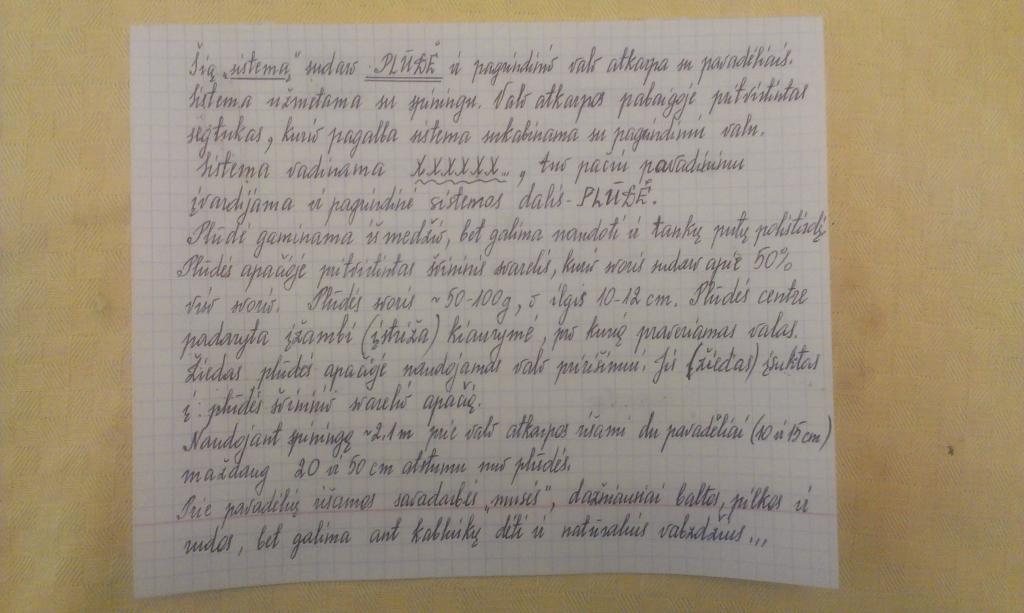 Šią „sistemą" sudaro PLŪDĖ ir pagrindinio valo atkarpa su pavadėliais.
Sistema užmetama su spiningu. Valo atkarpos pabaigoje pritvirtintas
segtukas, kurio pagalba sistema sukabinama su pagrindiniu valu.
Sistema vadinama XXXXXX..., tuo pačiu pavadinimu
įvardijama ir pagrindinė sistemos dalis - PLŪDĖ.
Plūdė gaminama iš medžio, bet galima naudoti ir tankų putų polistirolį.
Plūdės apačioje pritvirtintas švininis svarelis, kurio svoris sudaro apie 50%
viso svorio. Plūdės svoris ~50-100g, o ilgis 10-12 cm. Plūdės centre
padaryta įžambi (įstriža) kiaurymė, pro kurią praveriamas valas.
Žiedas plūdės apačioje naudojamas valo pririšimui. Jis (žiedas) įsuktas
į plūdės švininio svarelio apačią.
Naudojant spiningą ~2.1m prie valo atkarpos rišami du pavadėliai (10 ir 15cm)
maždaug 20 ir 50 cm atstumu nuo plūdės.
Prie pavadėlių rišamos savadarbės „musės", dažniausiai baltos, pilkos ir
rudos, bet galima ant kabliukų dėti ir natūralius vabzdžius...